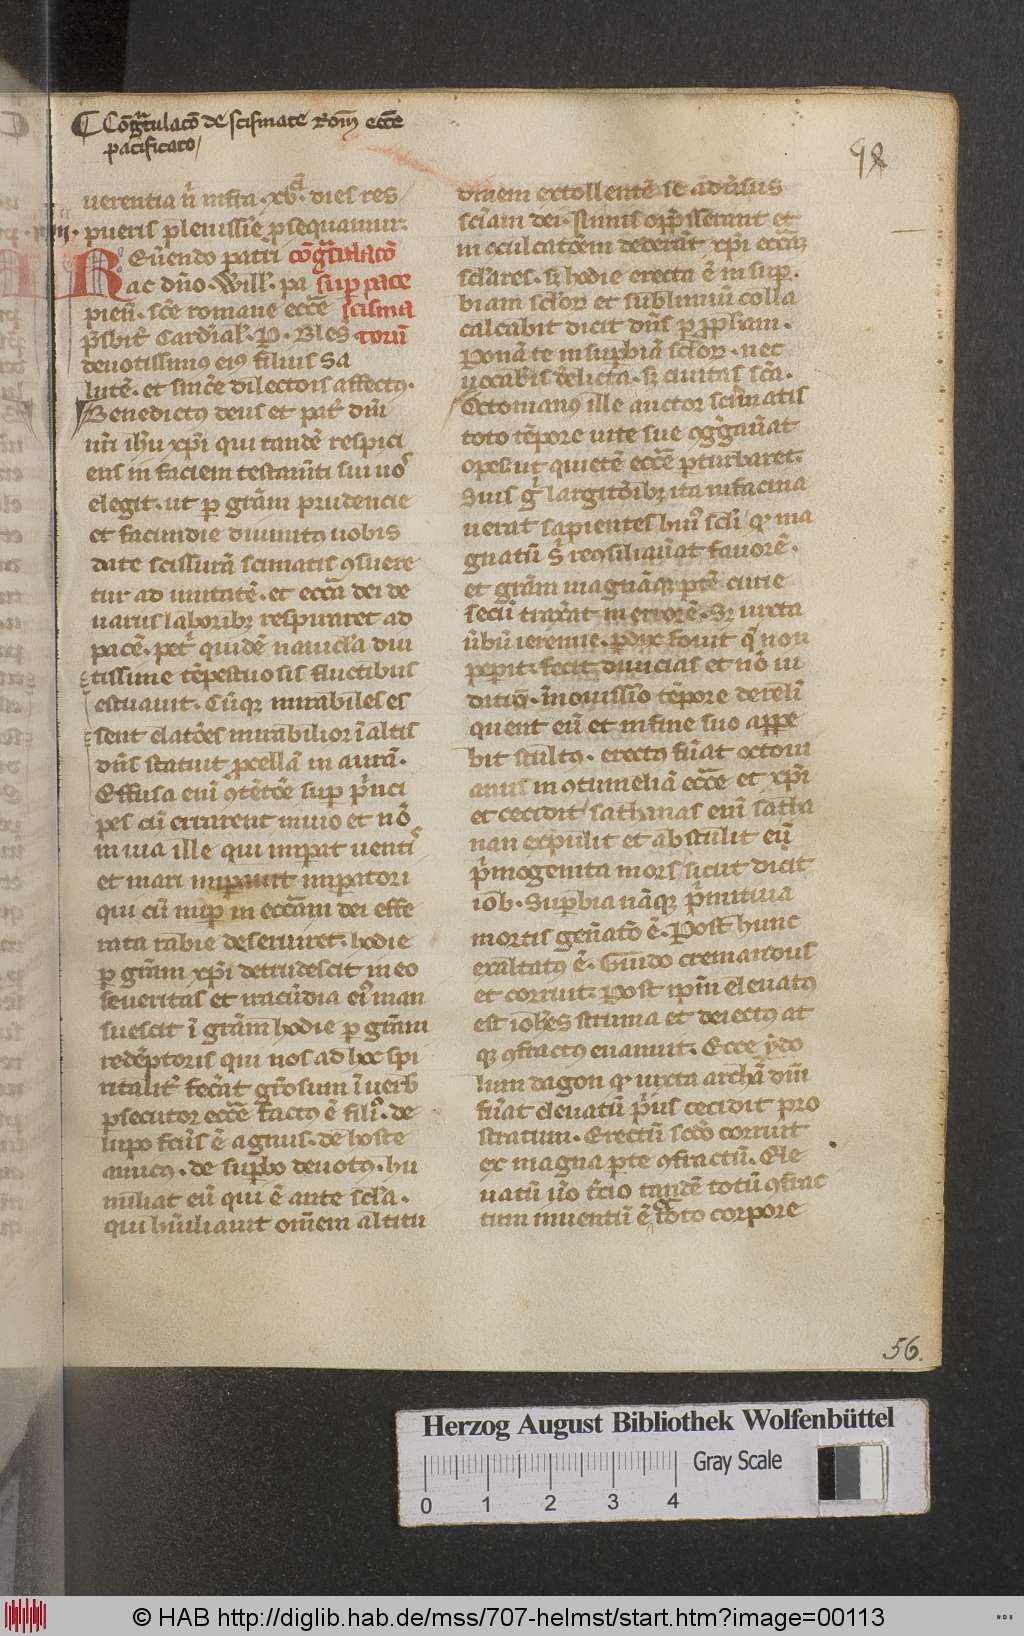 Cōgͣtulacō de scismate Rom̄ eccͤe
pacificato
92
uerentia ur̄i infra .xvͣ. dies res
pueris plenissīe ꝓsequamur.
.iiii.
Reūendo patri cōgͣtulacō
ac dn̄o .Willꝰ. pa sup pace
pien̄. sc̄e romane eccͤe scisma
p̄sbit̄ Cardīal. P. Bles̄ ticorū
deuotissimus eiꝰ filius Sa
lutē. et sincͤe dilectōis affectū.
Benedictꝰ deus et pat̄ dn̄i
nr̄i ih̄u xp̄i qui tandē respici
ens in faciem testam̄ti sui uos
elegit. ut p gr̄am prudencie
et facundie diuinitꝰ uobis
date scissurā scismatis ꝯsuere
tur ad unitatē. et eccͣa dei de
uariis laboribꝫ respiraret ad
pacē. pet̄ quidē nauicl̄a diu
tissime tēpestuosis fluctibus
estuauit. Cūqꝫ mirabiles es
sent elatōes mirabilior ī altis
dn̄s statuit ꝓcellā in aurā.
Effusa eni ꝯtētōe sup p̄nci
pes cū errarent inuio et nō
in uia ille qui imp̄at uentis
et mari imp̄auit imp̄atori
qui cū nup in eccͣam dei effe
rata rabie deseruiret. hodie
p gr̄am xp̄i detrudescit in eo
seueritas et iracūdia eiꝰ man
suescit ī gr̄am hodie p gr̄am
redēptoris qui nos ad hoc spi
ritalit̄ fec̄at gr̄osum ī uerb
ꝑsecutor eccͤe factꝰ ē filiꝰ. de
lupo fc̄us ē agnus. de hoste
amicꝰ. de supbo deuotꝰ. hu
miliat eū qui ē ante sc̄la.
qui humiliauit om̄em altitu
dinem extollentē se aduˀsus
scīam dei. Filiuis opp̄sserant et
in ꝯculcatōem dederāt xp̄i eccͣꝫ
sc̄lares. sꝫ hodie erecta ē in sup.
biam sc̄lor̄ et sublimiū colla
calcabit dicit dn̄s p ꝓph̄am.
Ponā te in supbiā sc̄lor̄. nec
uocabis d̄elicta. sꝫ ciuitas sc̄a.
Octouianꝰ ille auctor scismatis
toto tēpore uite sue ꝯgͣgau̅at
opes. ut quietē eccͤe pturbaret.
Suis gͥ largitōibꝫ ita infacina
uerat sapientes huiꝰ sc̄li qꝫ ma
gnatū sͥ reꝯsiliau̅at fauorē.
et gr̄am magnāqꝫ ptē curie
secū trax̄at in errorē. Sꝫ iuxta
ūbū ieremie. Pdix fouit q̄ non
pepit. fecit diuicias et nō iu
ditio. Inouissīo tēpore derelī
quent eū et in fine suo appe
bit stultꝰ. erectꝰ fūat octoui
anus in ꝯtumeliā eccͤe et xp̄i
et cecidit sathanas eni satha
nan expulit et abstulit eū
p̄mogenita mors sicut dicit
iob. Supbia nāqꝫ p̄mitiua
mortis genˀatō ē. Post hunc
exaltatꝰ ē. Guido cremandus
et corruit. Post ip̄m eleuatꝰ
est ioh̄es struma et deiectꝰ at
qꝫ ꝯfractꝰ euanuit. Ecce ydo
lum dagon qꝫ iuxta archā dn̄i
fūat eleuatū p̄us cecidit pro
stratum. Erectū sec̄o corruit
ex magna pte ꝯfractū. Ele
uatū ūo t̄cio tandē totū ꝯfrac
tum inuentū ē toto corpore
56.
Herzog August Bibliothek Wolfenbüttel
Gray Scale
0 1 2 3 4
© HAB http://diglib.hab.de/mss/707-helmst/start.htm?image=00113